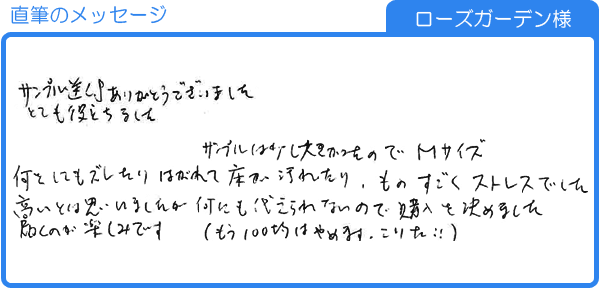 直筆のメッセージ
ローズガーデン様
サンプル送付ありがとうございました
とても役立ちました
サンプルは少し大きかったので Mサイズ
何をしてもズレたり はがれて 床が 汚れたり、ものすごく ストレスでした
高いとは思いましたが 何にも代えられないので 購入を決めました
届くのが楽しみです (もう100均はやめます。こりた!!)